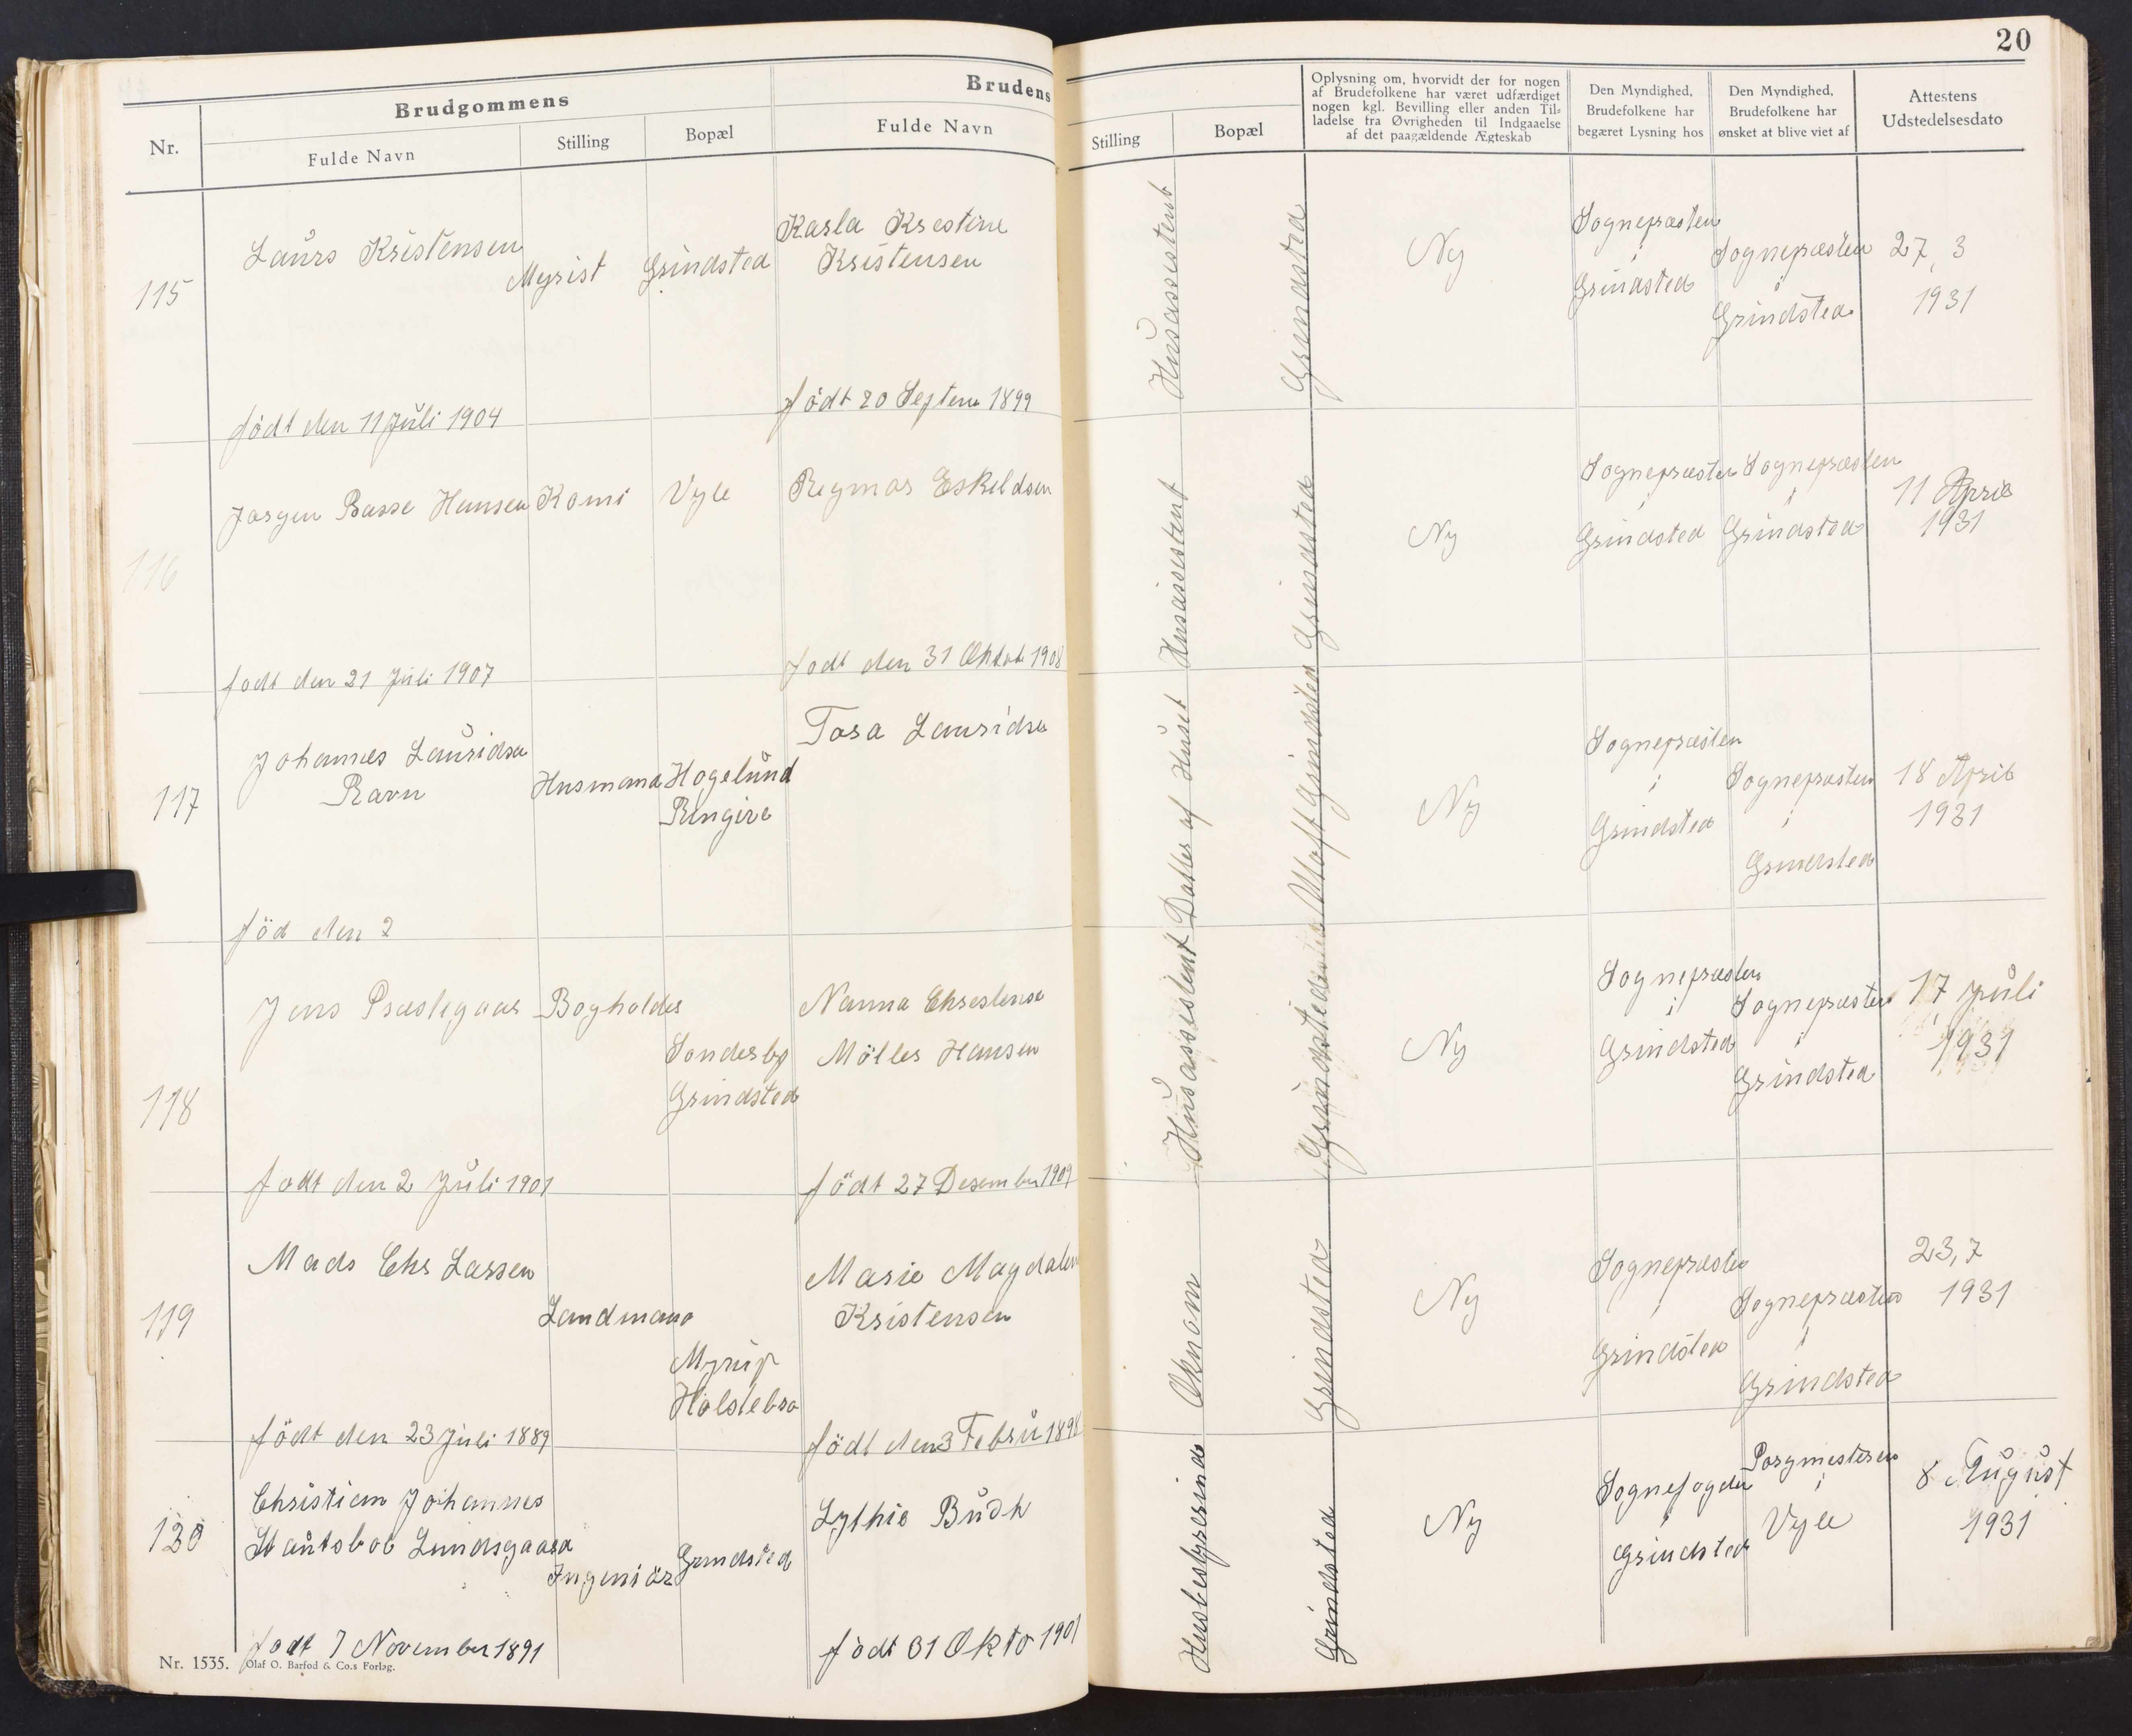 20
Brudgommens
Brudens
Nr.
Fulde Navn
Stilling
Bopæl
Fulde Navn
Stilling
Bopæl
Oplysning om, hvorvidt der for nogen
af Brudefolkene har været udfærdiget
nogen kgl. Bevilling eller anden Til-
ladelse fra Øvrigheden til Indgaaelse
af det paagældende Ægteskab
Den Myndighed,
Brudefolkene har
begæret Lysning hos
Den Myndighed,
Brudefolkene har
ønsket at blive viet af
Attestens
Udstedelsesdato
115
Laurs Kristensen
født den 11 Juli 1904
Myrist
Grindsted
Karla Krestine
Kristensen
født 20 Septem 1899
Husassistent
Grindsted
Ny
Sognepræsten
i
Grindsted
Sognepræsten
i
Grindsted
27, 3
1931
116
Jørgen Basse Hansen
født den 21 Juli 1907
Komi
Vyle
Regmor Eskildsen
født den 31 Oktob 1908
Husassistent
Grindsted
Ny
Sognepræsten
i
Grindsted
Sognepræsten
i
Grindsted
11 April
1931
117
Johannes Lauridsen
Ravn
fød den 2
Husmand
Hogelund
Ringive
Tora Lauridsen
Datter af Huset
Grindsted
Ny
Sognepræsten
i
Grindsted
Sognepræsten
i
Grindsted
18 April
1931
118
Jens Præstegaar
født den 2 Juli 1901
Bogholder
Sonderby
Grindsted
Nanna Chrestense
Möller Hansen
født 27 Desember 1909
Husassistent
Grindsted
Ny
Sognepræsten
i
Grindsted
Sognepræsten
i
Grindsted
17 Juli
1931
119
Mads Chr Lassen
født den 23 Juli 1889
Landmand
Myrup
Holstebro
Marie Magdalen
Kristensen
født den 3 Febru 1898
Økonom
Grindsted
Ny
Sognepræsten
i
Grindsted
Sognepræsten
i
Grindsted
23, 7
1931
120
Christian Johannes
Lundsgaard
født 7 November 1891
Ingeniör
Grindsted
Lythie Budk
født 31 Okto 1901
Husbestyrerinde
Grindsted
Ny
Sognefogden
i
Grindsted
Borgmesteren
i
Vyle
8 August
1931
Nr. 1535.
Olaf O. Barfod & Co.s Forlag.